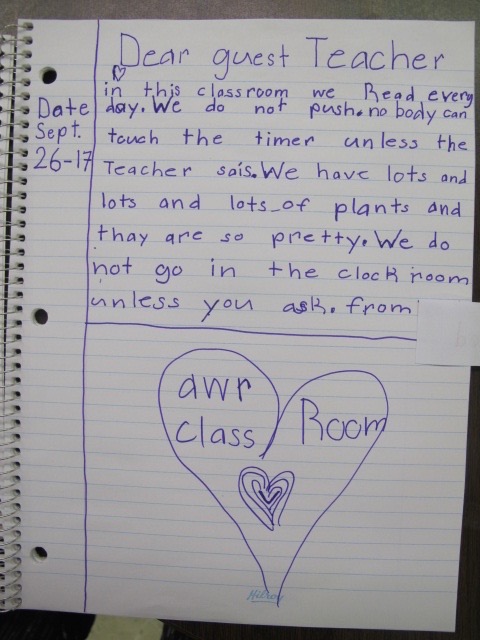 Dear guest Teacher
in this classroom we Read every
day. We do not push. no body can
touch the timer unless the
Teacher sais. We have lots and
lots and lots of plants and
thay are so pretty. We do
not go in the clock room
unless you ask. from
Date
Sept.
26-17
awr
class Room
Hilroy